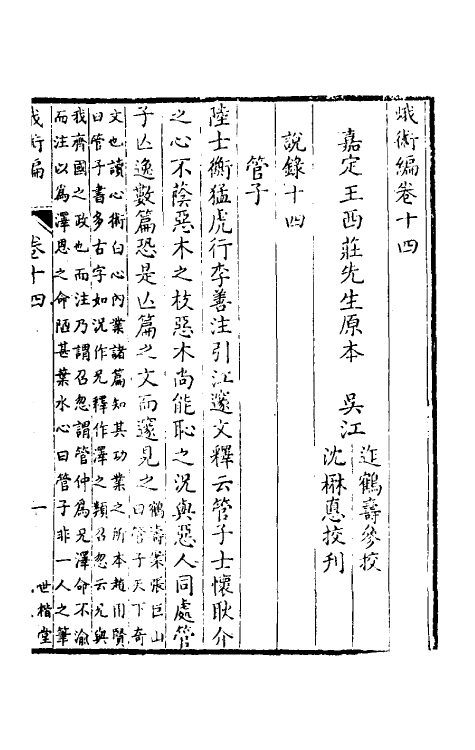 蛾術編卷十四
嘉定王西莊先生原本　吳江
迮鶴壽參挍
沈楙惪挍刊
說錄十四
管子
陸士衡猛虎行李善注引江邃文釋云管子士懷耿介
之心不蔭惡木之枝惡木尚能恥之況與惡人同處管
子亡逸數篇恐是亡篇之文而邃見之
鶴壽案張巨山
曰管子天下奇
文也讀心術白心內業諸篇知其功業之所本趙用賢
曰管子書多古字如況作兄釋作澤之類召忽云兄與
我齊國之政也而注乃謂召忽謂管仲為兄澤命不渝
而注以為澤恩之命陋甚葉水心曰管子非一人之筆
蛾術編
卷十四
一
世楷堂